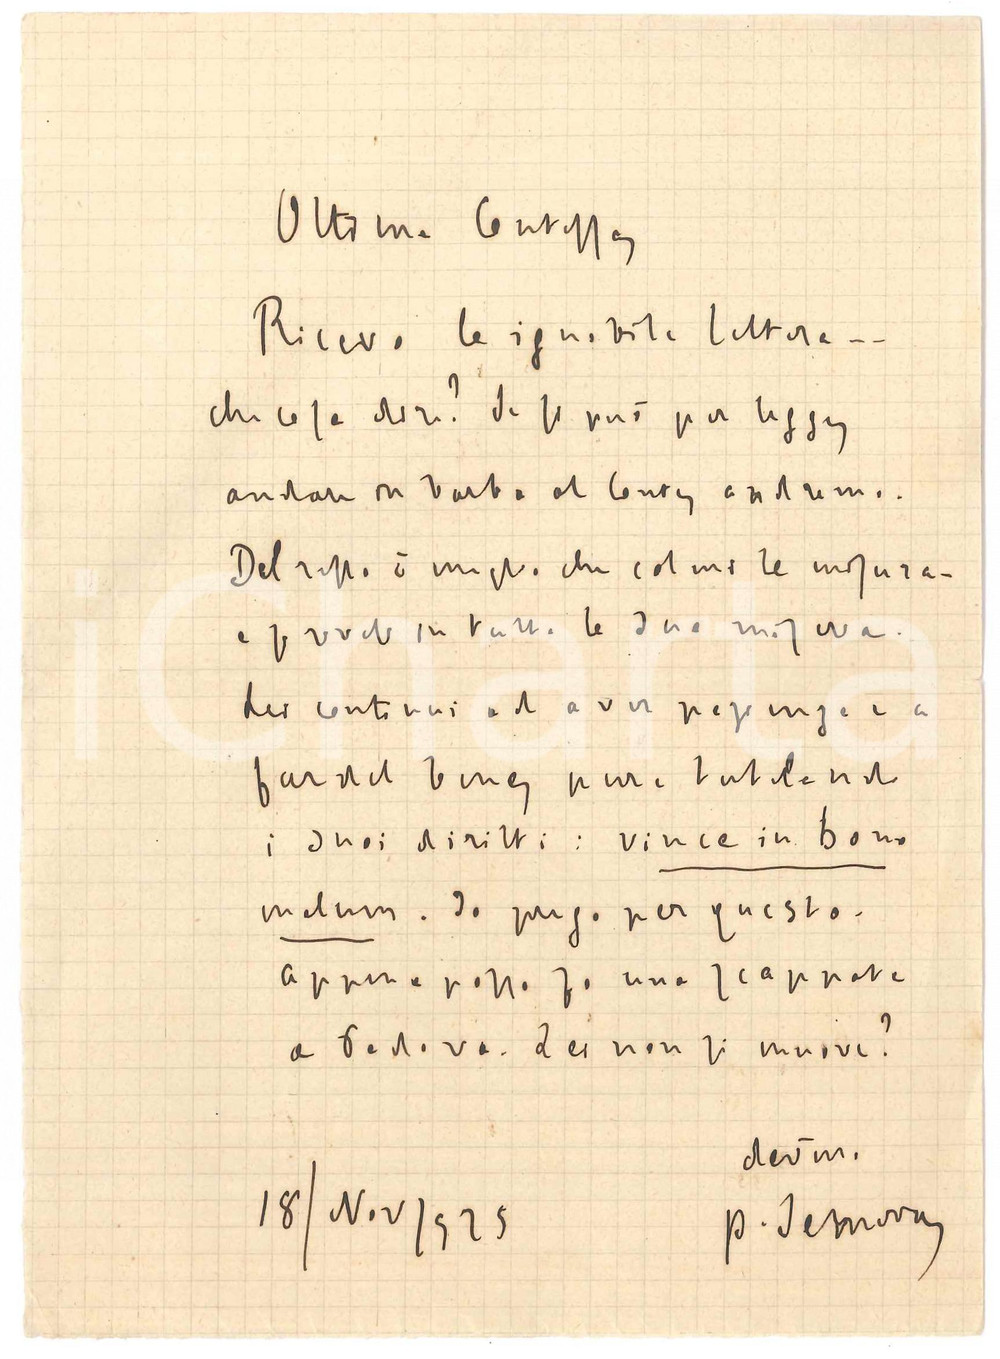 Ottima Contessa,
Ricevo la ignobile lettera --
che cosa dire? Se si può per legge,
andare in barba al Conte, andremo.
Del resto è meglio che colmi la misura -
e provochi in tutto la Sua misura.
Lei continui ad aver pazienza e a
far del bene, pure tutelando
i Suoi diritti: vince in bono
malum. Io prego per questo.
Appena posso fo una scappata
a Padova. Lei non si muove?
dev.mo
18/Nov/925
p. Semeria
iCharta